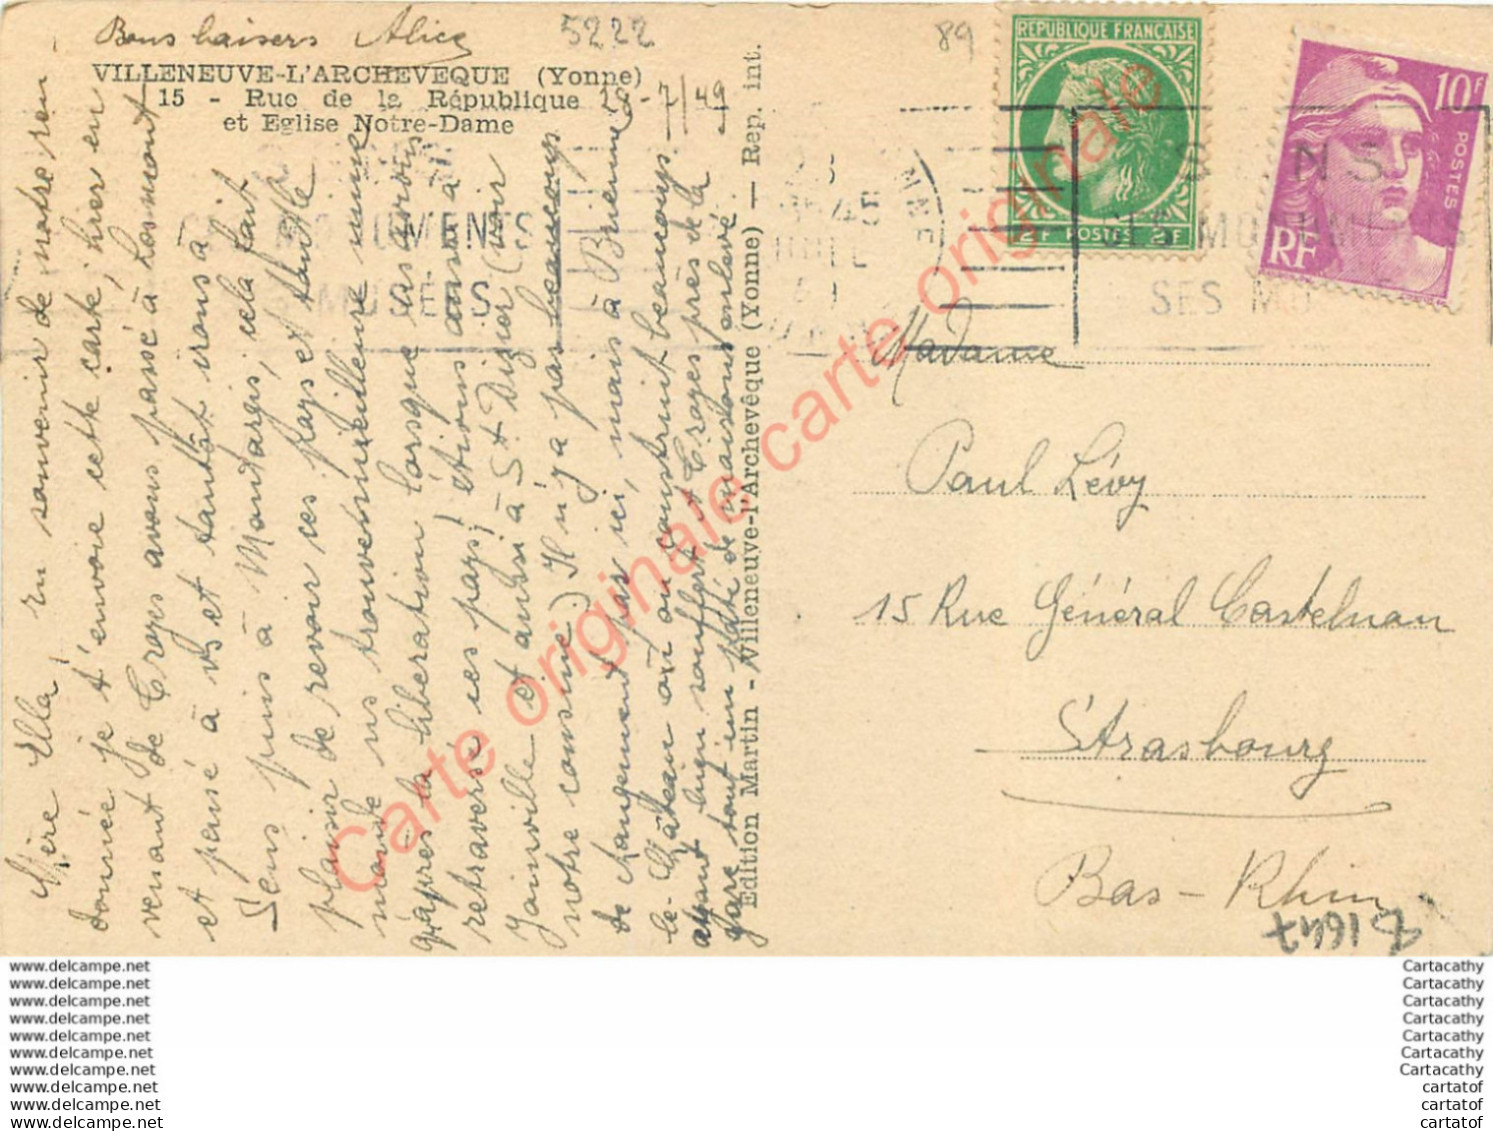 Bons baisers Alice
5222
89
VILLENEUVE-L'ARCHEVEQUE (Yonne)
15 - Rue de la République
et Eglise Notre-Dame
28-7/49
Mère Ella, en souvenir de notre ren
donnée je t'envoie cette carte, hier en
venant de Troyes avons passé à Losmont
et pensé à vs et tantôt irons à
Sens puis à Montargis, cela fait
plaisir de revoir ces pays et toute
monde ns trouvent meilleure mine
qu'après la libération lorsque as avions
retraversé ces pays, étions aussi à
Joinville et aussi à St Dizier (voir
notre cousine.) Il n'y a pas beaucoup
de changement par ici, mais à Brienne
le-Château où on construit beaucoup
ayant bien souffert et Troyes près de la
gare tout un pâté de maisons enlevé
Edition Martin - Villeneuve-l'Archevêque (Yonne) — Rep. int.
REPUBLIQUE FRANÇAISE
2F POSTES 2F
10F
POSTES
RF
SENS
SES MONUMENTS
SES MU
MONUMENTS
MUSEES
YONNE
JUIL
Madame
Paul Lévy
15 Rue Général Castelnau
Strasbourg
Bas-Rhin
B1647
Carte originale carte originale
www.delcampe.net
www.delcampe.net
www.delcampe.net
www.delcampe.net
www.delcampe.net
www.delcampe.net
www.delcampe.net
www.delcampe.net
www.delcampe.net
www.delcampe.net
Cartacathy
Cartacathy
Cartacathy
Cartacathy
Cartacathy
Cartacathy
Cartacathy
cartatof
cartatof
cartatof